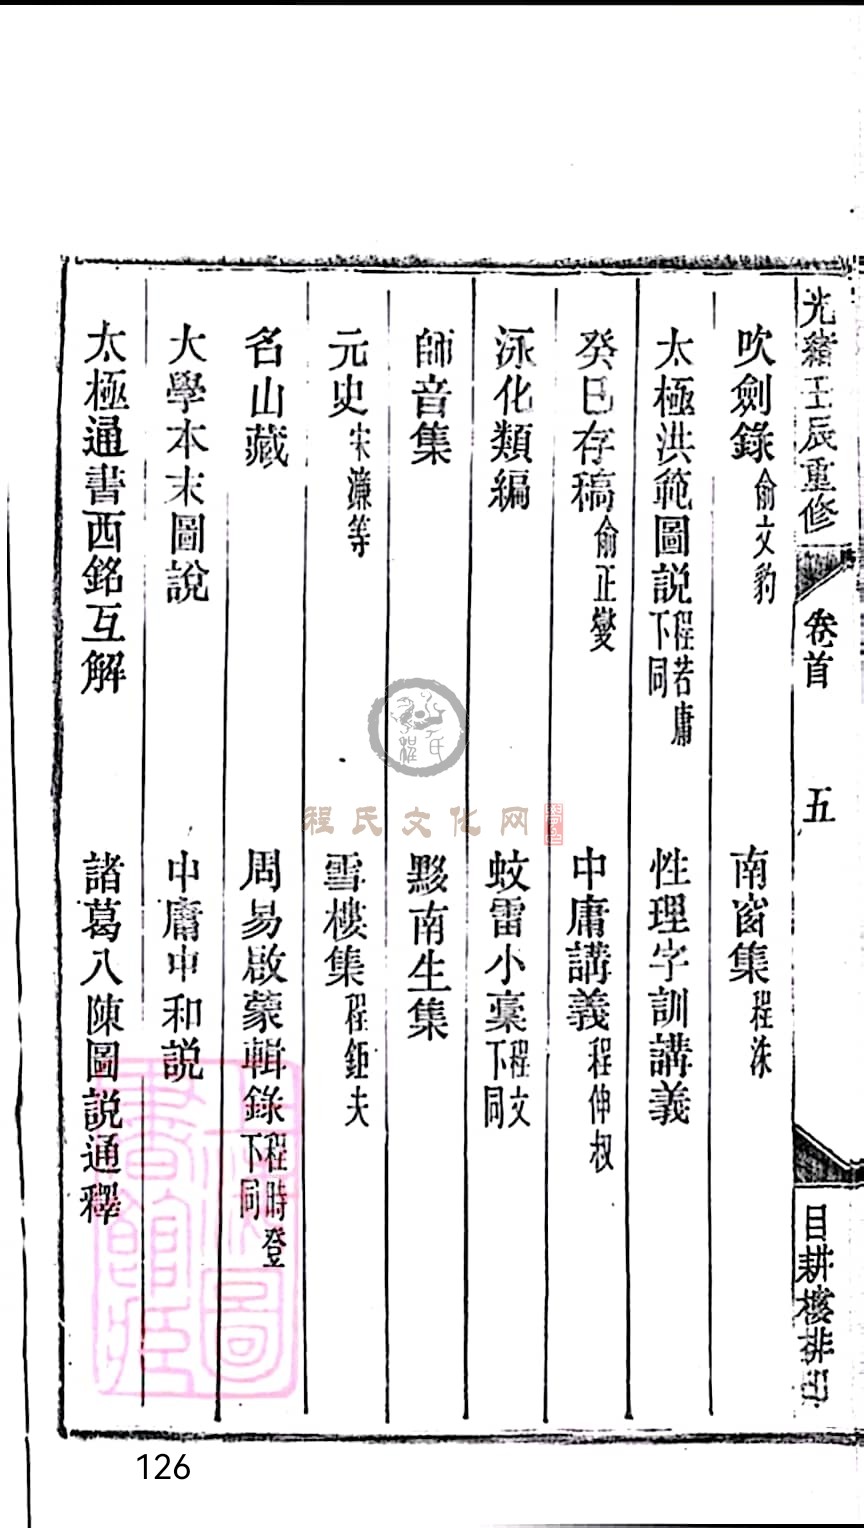 光緒壬辰重修 卷首 五 目耕樓排印
吹劍錄俞文豹 南窗集程洙
太極洪範圖說程若庸下同 性理字訓講義
癸巳存稿俞正燮 中庸講義程伸叔
泳化類編 蚊雷小稾程文下同
師音集 黟南生集
元史宋濂等 雪樓集程鉅夫
名山藏 周易啟蒙輯錄程時登下同
大學本末圖說 中庸中和說
太極通書西銘互解 諸葛八陳圖說通釋
程氏文化网
程氏
126